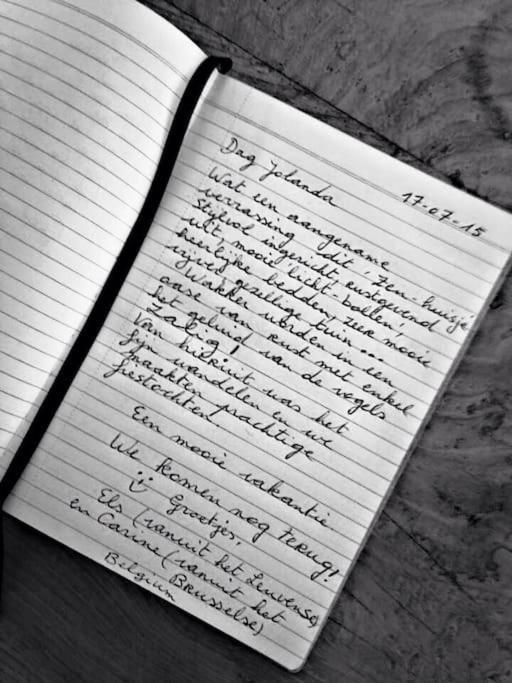 17-07-15
Dag Jolanda
Wat een aangename
verrassing dit 'zen-huisje'
stijlvol ingericht, rustgevend
wit, mooie licht-bollen!
heerlijke bedden, zeer mooie
vrij gezellige tuin...
Wakker worden in een
oase van rust met enkel
het geluid van de vogels
Zalig!
Van hieruit was het
fijn wandelen en we
maakten prachtige
fietstochten.
Een mooie vakantie
We komen nog terug!
Groetjes.
Els (vanuit het Leuvense)
en Carine (vanuit het
Brusselse)
Belgium